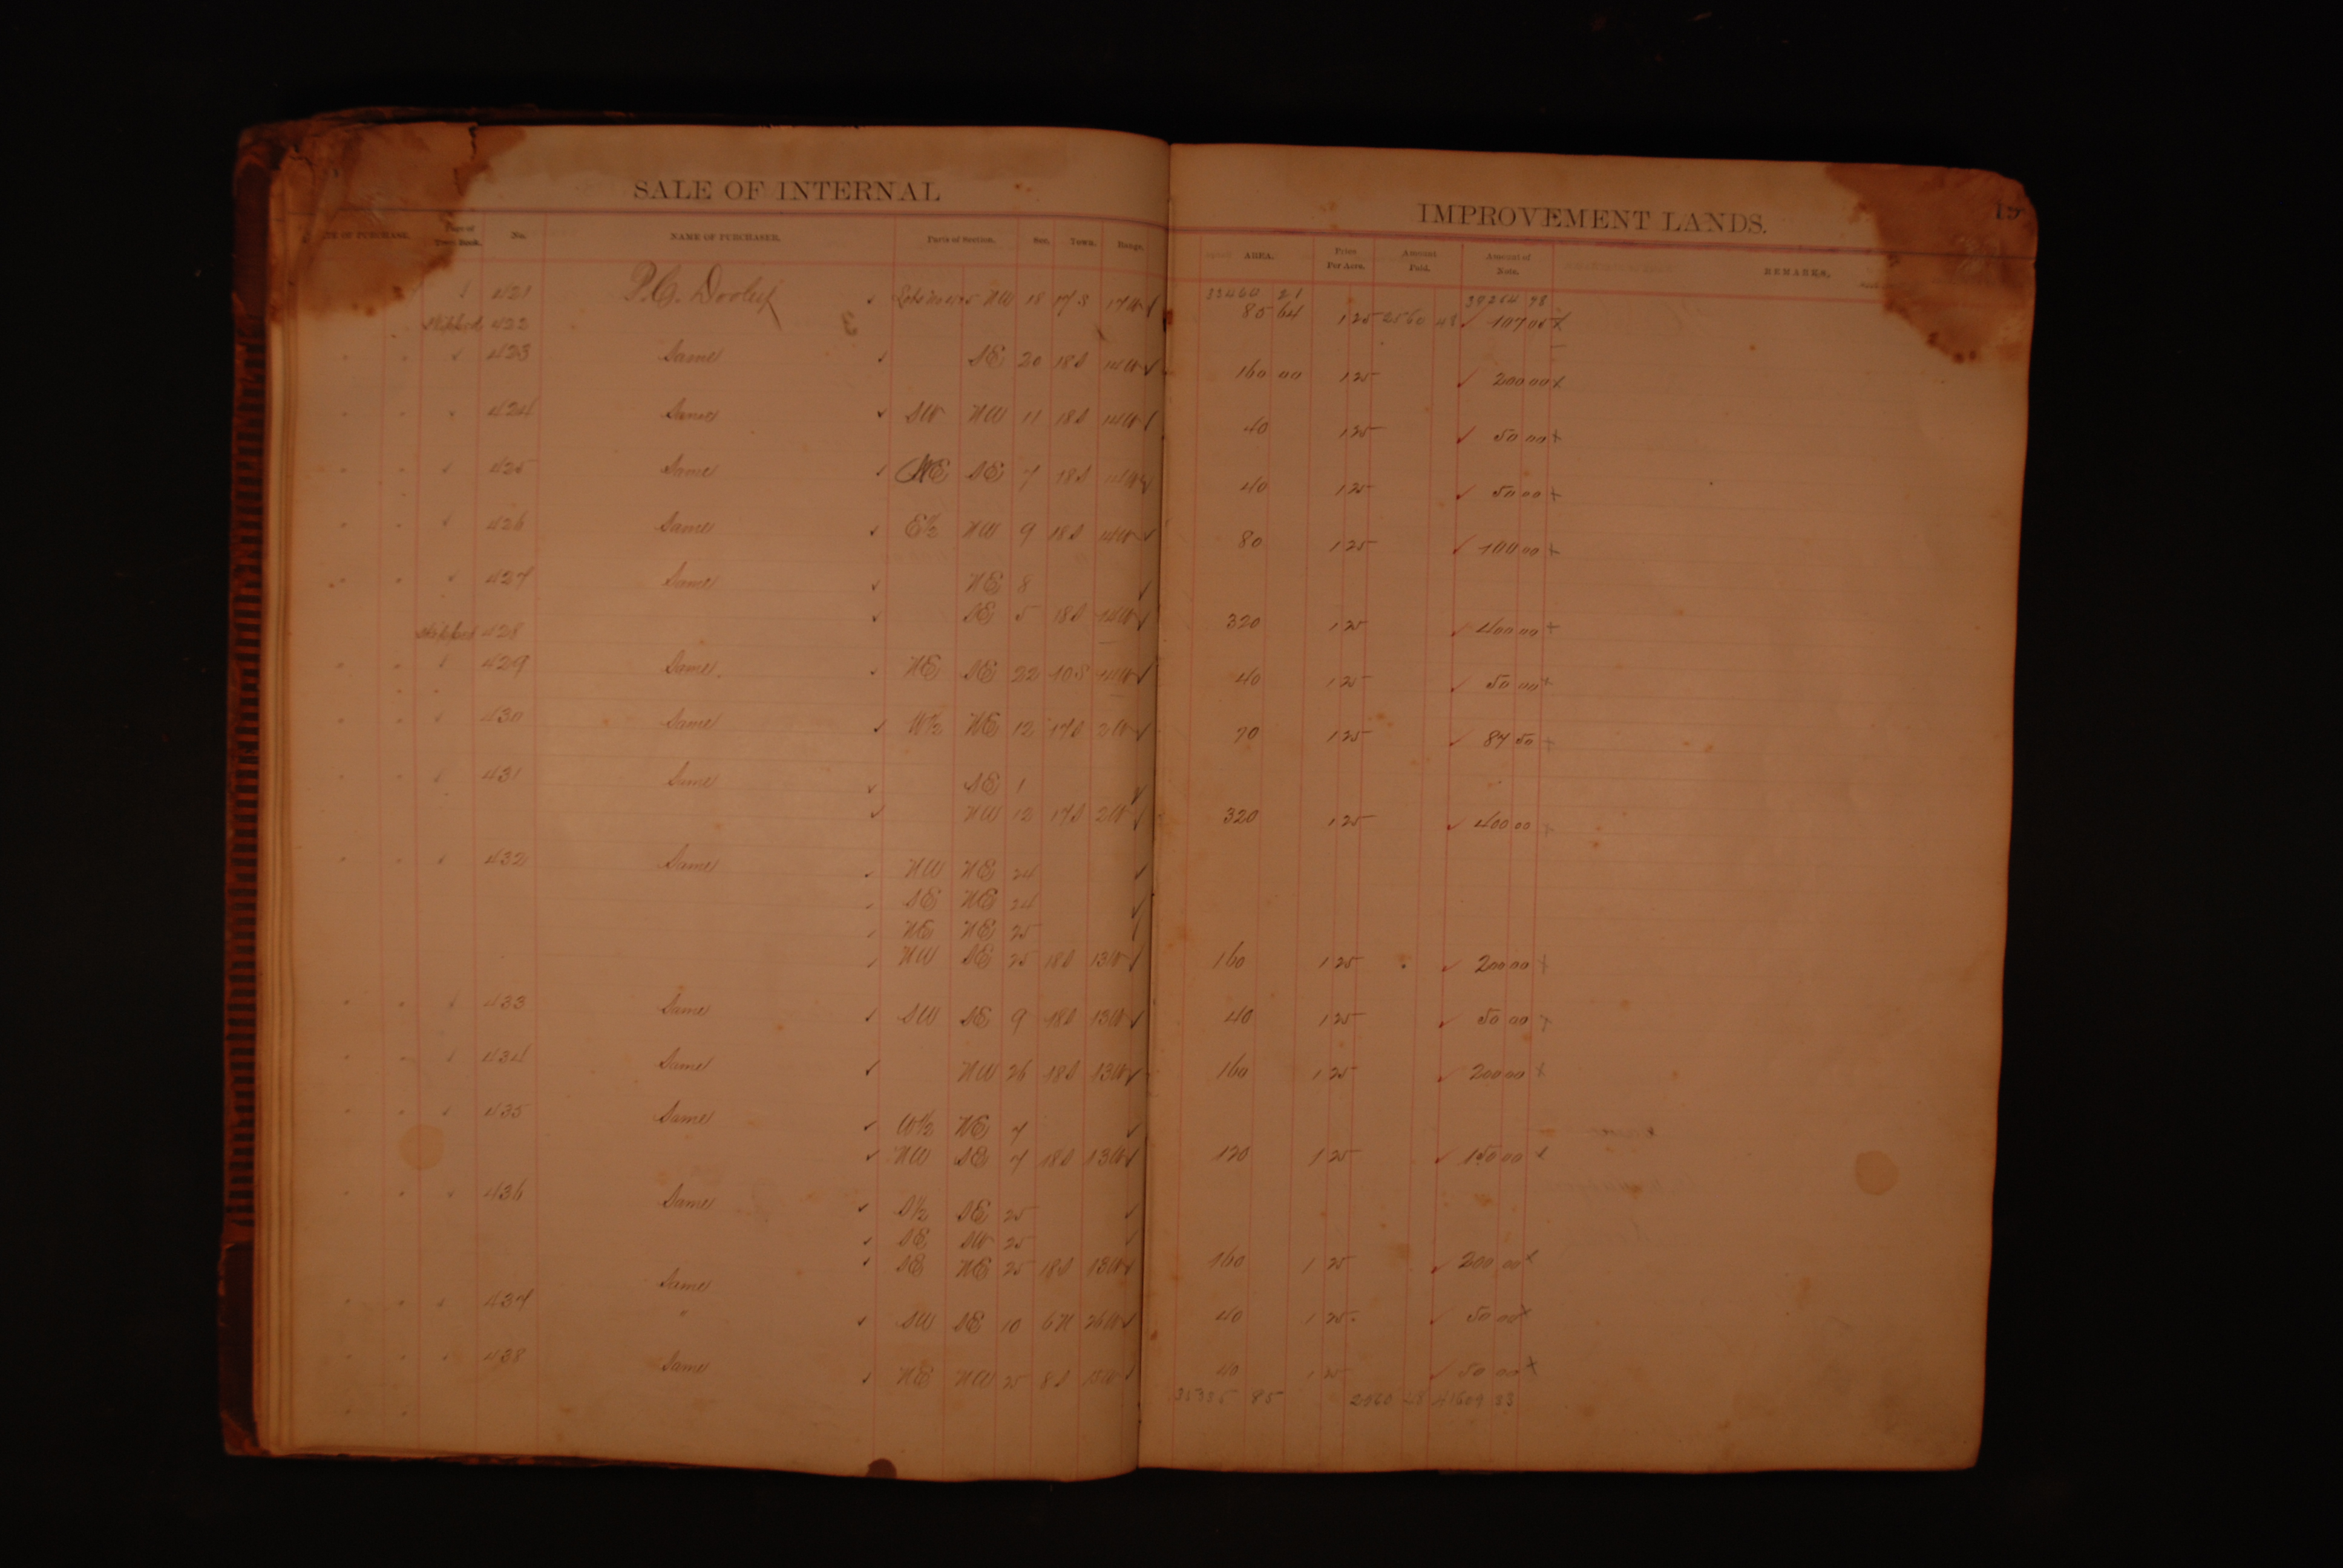 SALE OF INTERNAL IMPROVEMENT LANDS.
OF PURCHASE. Page of Book. No. NAME OF PURCHASER. Parts of Section. Sec. Town. Range. AREA. Price Per Acre. Amount Paid. Amount of Note. REMARKS.
33464 21 39264 98
421 P.C. Dooley NW 18 17 S 17W 85 64 1 25 2560 48 107 05
Skipped 422
423 Same SE 20 18S 14W 160 00 1 25 200 00
424 Same SW NW 11 18S 14W 40 1 25 50 00
425 Same NE SE 7 18S 40 1 25 50 00
426 Same E½ NW 9 18S 14W 80 1 25 100 00
427 Same NE 8
SE 5 18S 14W 320 1 25 400 00
Skipped 428
429 Same NE SE 22 10S 14W 40 1 25 50 00
430 Same W½ NE 12 17S 2W 70 1 25 87 50
431 Same SE 1
NW 12 17S 2W 320 1 25 400 00
432 Same NW NE 24
SE NE 24
NE NE 25
NW SE 25 18S 13W 160 1 25 200 00
433 Same SW SE 9 18S 13W 40 1 25 50 00
434 Same NW 26 18S 13W 160 1 25 200 00
435 Same W½ NE 7
NW SE 7 18S 13W 120 1 25 150 00
436 Same S½ SE 25
SE SW 25
SE NE 25 18S 13W 160 1 25 200 00
Same
437 " SW SE 10 6N 26W 40 1 25 50 00
438 Same NE NW 25 8S 15W 40 1 25 50 00
35335 85 2560 48 41609 53